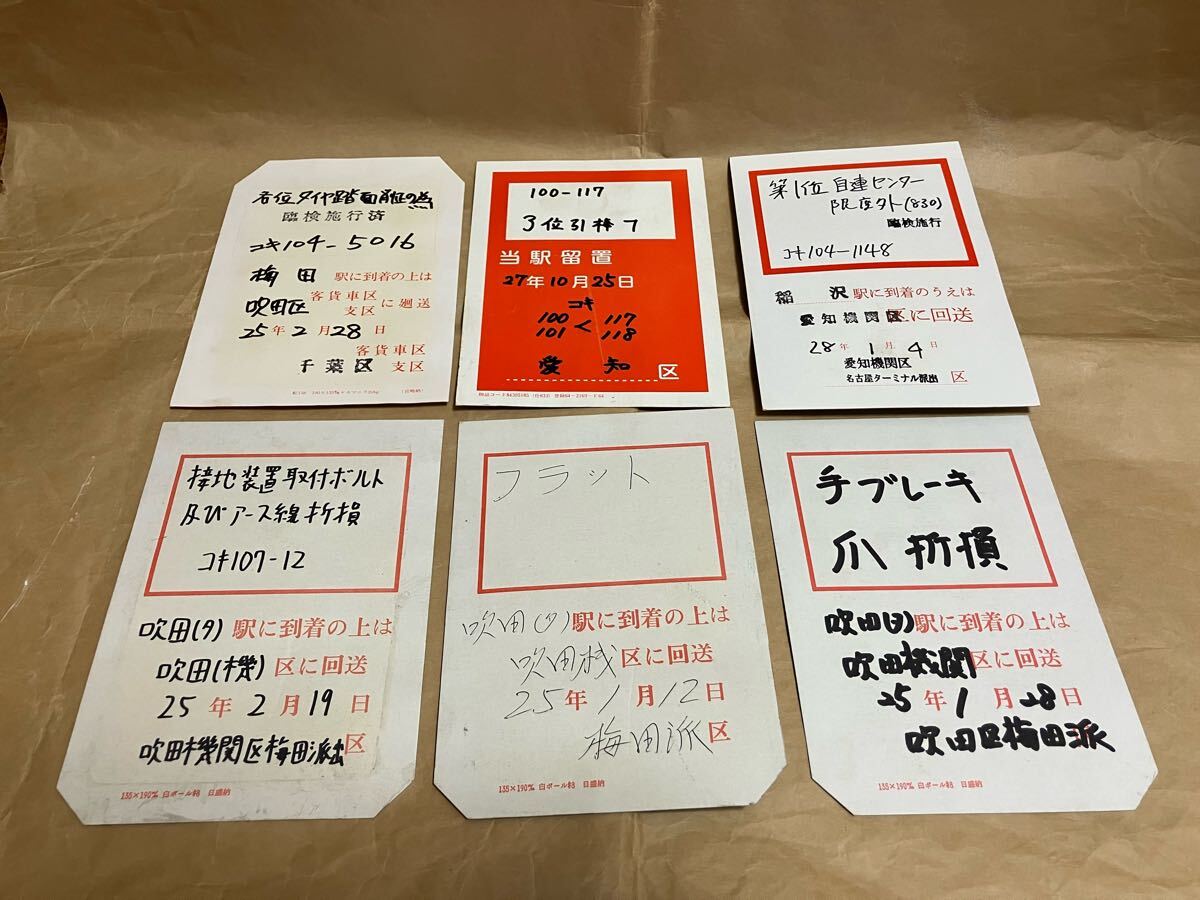 各位タイヤ踏面剥離の為
臨検施行済
コキ104-5016
梅田 駅に到着の上は
吹田区 客貨車区 支区 に廻送
25年2月28日
客貨車区
千葉区 支区
100-117
3位引棒フ
当駅留置
27年10月25日
コキ
100 < 117
101 118
愛知 区
第1位 自連センター
限度外(830)
臨検施行
コキ104-1148
稲沢 駅に到着のうえは
愛知機関区 区に回送
28年1月4日
愛知機関区
名古屋ターミナル派出 区
接地装置取付ボルト
及びアース線折損
コキ107-12
吹田(タ) 駅に到着の上は
吹田(機) 区に回送
25年2月19日
吹田機関区梅田派出 区
135×190% 白ボール紙 日盛納
フラット
吹田(タ) 駅に到着の上は
吹田機 区に回送
25年1月12日
梅田派 区
135×190% 白ボール紙 日盛納
手ブレーキ
爪 折損
吹田(タ) 駅に到着の上は
吹田機関 区に回送
25年1月28日
吹田区梅田派
135×190% 白ボール紙 日盛納